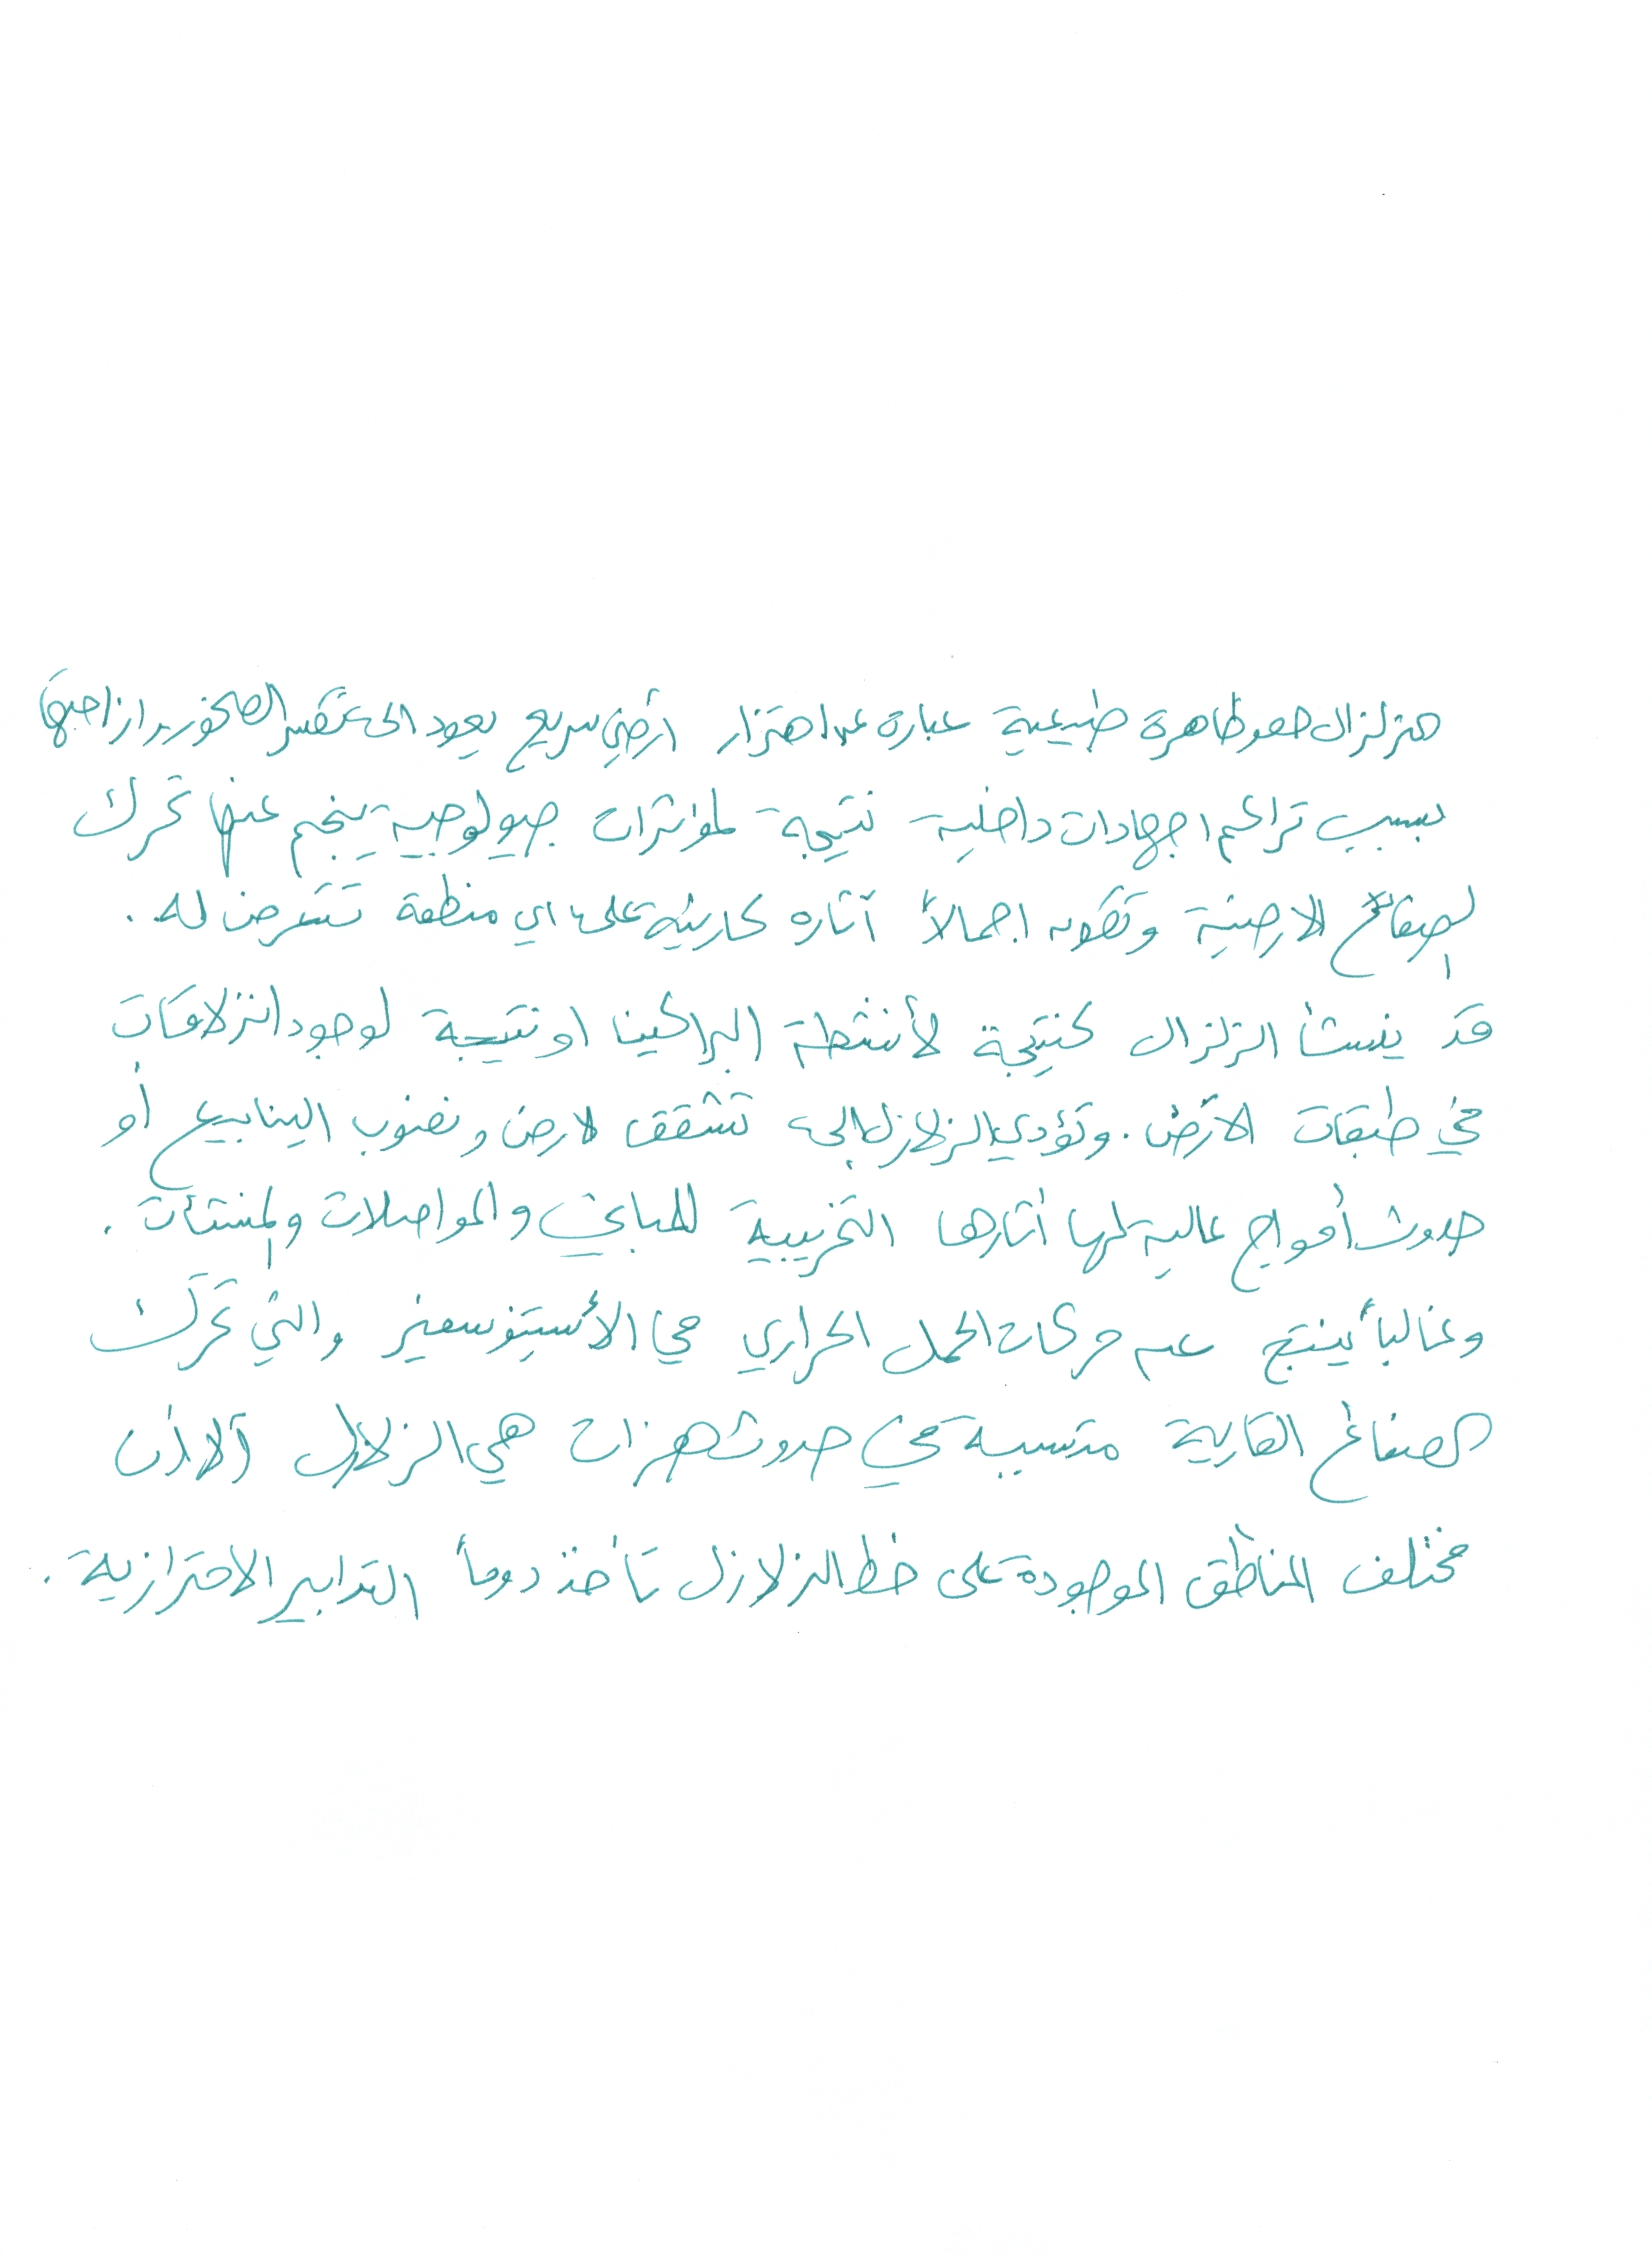 الزلزال هو ظاهرة طبيعية عبارة عن اهتزاز ارضي سريع يعود الى تكسر الصخور وازاحتها
بسبب تراكم اجهادات داخلية نتيجة لمؤثرات جيولوجية ينجم عنها تحرك
الصفائح الارضية وتكون اجمالاً آثاره كارثية على اي منطقة تتعرض له.
قد ينشأ الزلزال كنتيجة لأنشطة البراكين او نتيجة لوجود انزلاقات
في طبقات الارض. وتؤدي الزلازل إلى تشقق الارض ونضوب الينابيع أو
حدوث أمواج عالية لها أثارها التخريبية للمباني والمواصلات والمنشأت.
وغالباً ينتج عن حركات الحمل الحراري في الأستينوسفير والتي تحرك
الصفائح القارية متسببة في حدوث هزات هي الزلازل إلا ان
مختلف المناطق الموجودة على خط الزلازل تأخذ دوماً التدابير الاحترازية.